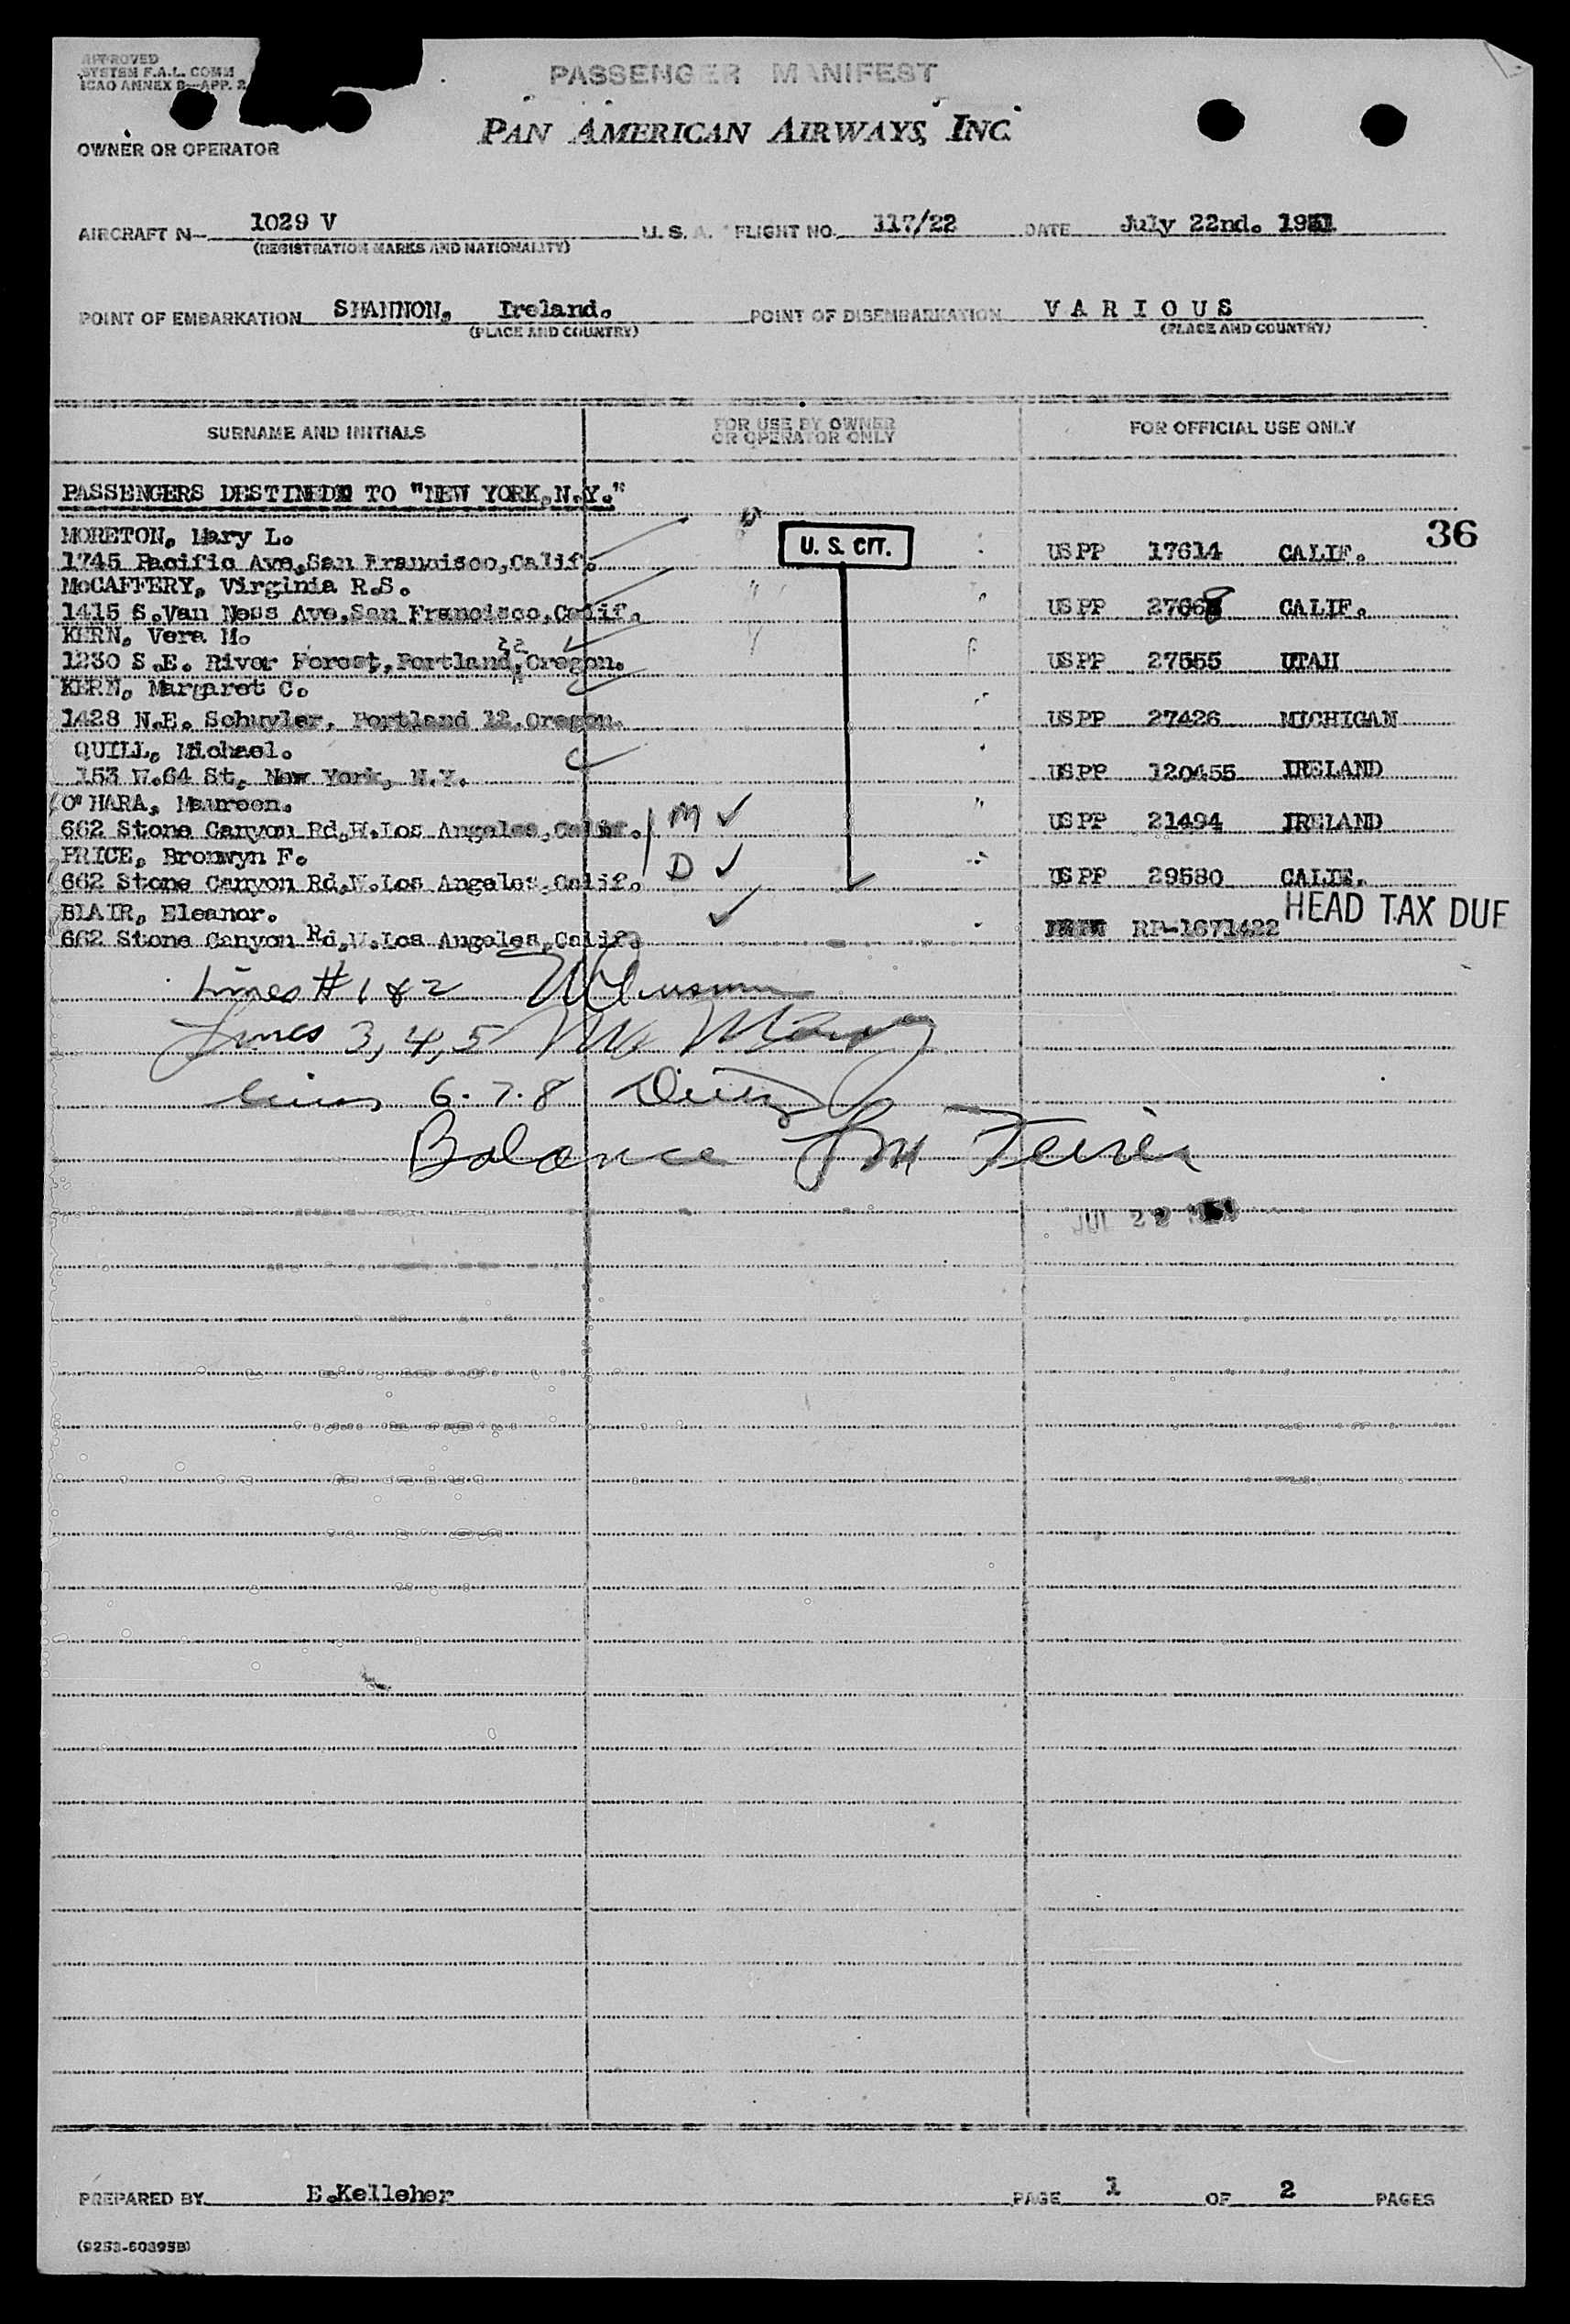 APPROVED
SYSTEM F.A.L. COMM
ICAO ANNEX 9—APP. 2
PASSENGER MANIFEST
OWNER OR OPERATOR PAN AMERICAN AIRWAYS, INC.
AIRCRAFT N— 1029 V U. S. A. FLIGHT NO. 117/22 DATE July 22nd. 1951
(REGISTRATION MARKS AND NATIONALITY)
POINT OF EMBARKATION SHANNON, Ireland. POINT OF DISEMBARKATION V A R I O U S
(PLACE AND COUNTRY) (PLACE AND COUNTRY)
SURNAME AND INITIALS FOR USE BY OWNER OR OPERATOR ONLY FOR OFFICIAL USE ONLY
PASSENGERS DESTINED TO "NEW YORK,N.Y."
36
MORETON, Mary L.
U. S. CIT.
1745 Pacific Ave,San Francisco,Calif. USPP 17614 CALIF.
McCAFFERY, Virginia R.S.
1415 S.Van Ness Ave,San Francisco,Calif. USPP 27668 CALIF.
KERN, Vera M.
1230 S.E. River Forest,Portland,Oregon. USPP 27555 UTAH
22
KERN, Margaret C.
1428 N.E. Schuyler, Portland 12,Oregon. USPP 27426 MICHIGAN
QUILL, Michael.
153 W.64 St, New York, N.Y. USPP 120455 IRELAND
O'HARA, Maureen.
662 Stone Canyon Rd,W.Los Angeles,Calif. M ✓ USPP 21494 IRELAND
PRICE, Bronwyn F.
662 Stone Canyon Rd,W.Los Angeles,Calif. D ✓ USPP 29580 CALIF.
BLAIR, Eleanor. ✓ HEAD TAX DUE
662 Stone Canyon Rd,W.Los Angeles,Calif. RP-1671422
Lines # 1 & 2
Lines 3, 4, 5
Lines 6. 7. 8
Balance
JUL 22
PREPARED BY E.Kelleher PAGE 1 OF 2 PAGES
(9253-60395B)